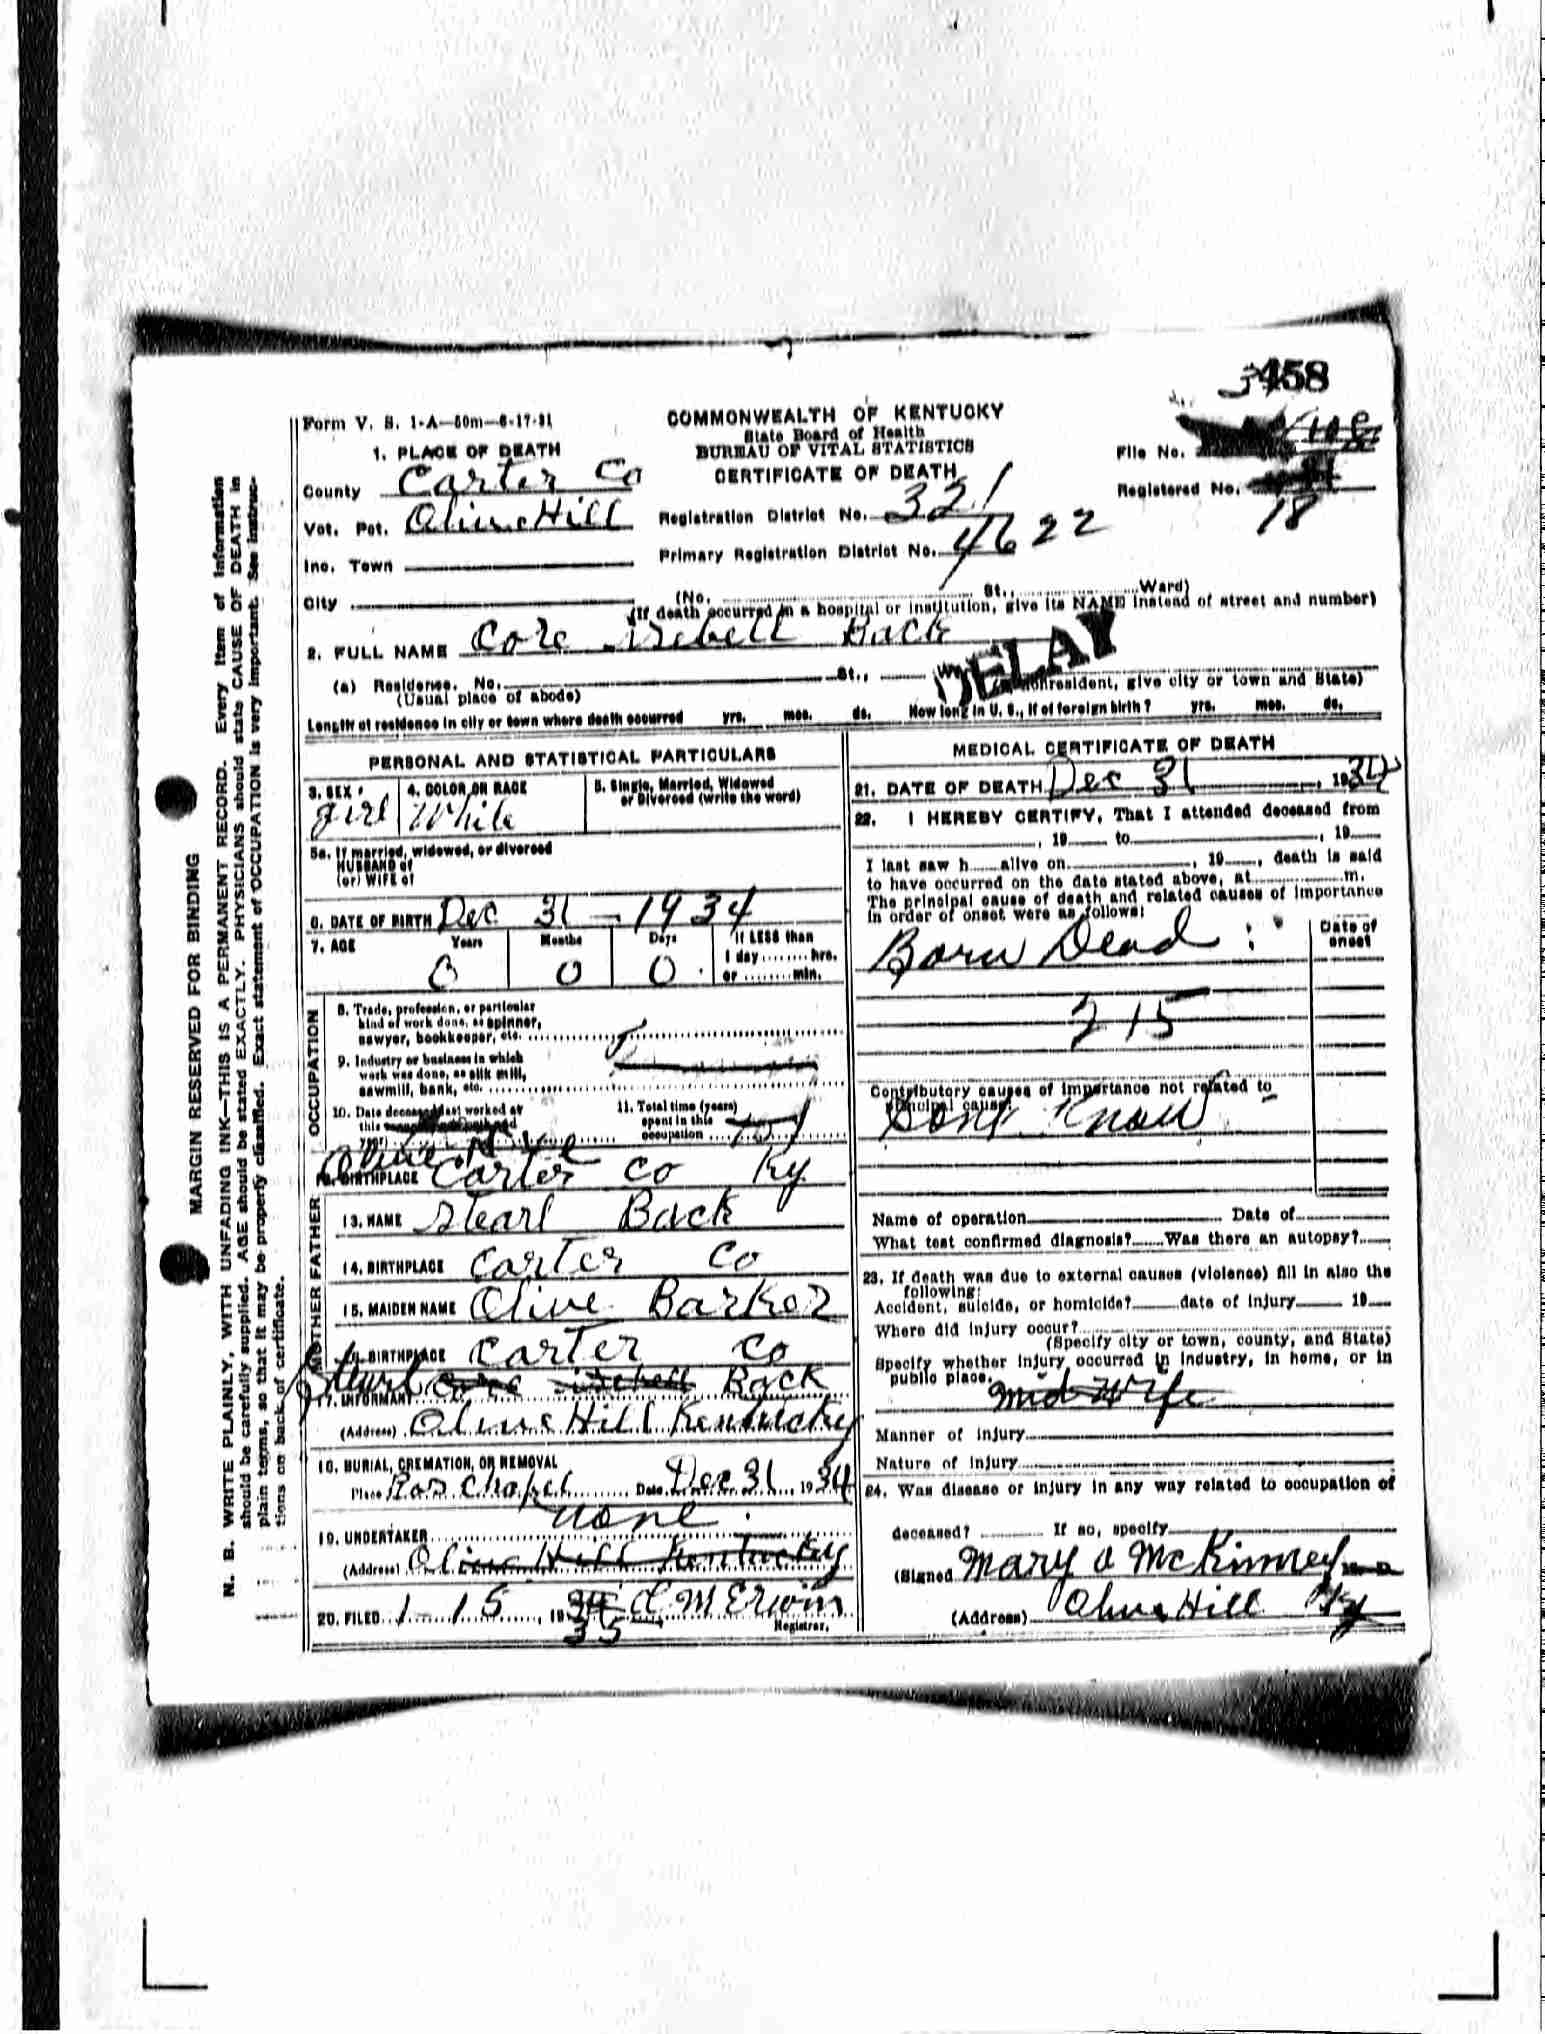 3458
Form V. S. 1-A—50m—6-17-31
COMMONWEALTH OF KENTUCKY
State Board of Health
BUREAU OF VITAL STATISTICS
CERTIFICATE OF DEATH
File No.
Registered No.
18
1. PLACE OF DEATH
County Carter Co
Vot. Pct. Olive Hill
Inc. Town
City
Registration District No. 321
Primary Registration District No. 4622
(No. St., Ward)
(If death occurred in a hospital or institution, give its NAME instead of street and number)
2. FULL NAME Back
DELAY
(a) Residence. No. St.,
(Usual place of abode)
nonresident, give city or town and State)
Length of residence in city or town where death occurred yrs. mos. ds. How long in U. S., if of foreign birth? yrs. mos. ds.
PERSONAL AND STATISTICAL PARTICULARS
3. SEX girl
4. COLOR OR RACE White
5. Single, Married, Widowed
or Divorced (write the word)
5a. If married, widowed, or divorced
HUSBAND of
(or) WIFE of
6. DATE OF BIRTH Dec 31 - 1934
7. AGE Years Months Days If LESS than
1 day ........ hrs.
or ........ min.
0 0 0
OCCUPATION
8. Trade, profession, or particular
kind of work done, as spinner,
sawyer, bookkeeper, etc.
9. Industry or business in which
work was done, as silk mill,
sawmill, bank, etc.
10. Date deceased last worked at
this
year)
11. Total time (years)
spent in this
occupation
Olive
12. BIRTHPLACE Carter Co Ky
FATHER
13. NAME Stearl Back
14. BIRTHPLACE Carter Co
MOTHER
15. MAIDEN NAME Olive Barker
16. BIRTHPLACE Carter Co
17. INFORMANT Stearl Back
(Address) Olive Hill Kentucky
18. BURIAL, CREMATION, OR REMOVAL
Place Chapel Date Dec 31 1934
19. UNDERTAKER none
(Address) Olive Hill Kentucky
20. FILED 1-15, 19 34 35 Erwin
Registrar.
MEDICAL CERTIFICATE OF DEATH
21. DATE OF DEATH Dec 31, 1934
22. I HEREBY CERTIFY, That I attended deceased from
, 19 to , 19
I last saw h alive on , 19 , death is said
to have occurred on the date stated above, at m.
The principal cause of death and related causes of importance
in order of onset were as follows:
Date of
onset
Born Dead
215
Contributory causes of importance not related to
principal cause:
Dont Know
Name of operation Date of
What test confirmed diagnosis? Was there an autopsy?
23. If death was due to external causes (violence) fill in also the
following:
Accident, suicide, or homicide? date of injury 19
Where did injury occur?
(Specify city or town, county, and State)
Specify whether injury occurred in industry, in home, or in
public place.
Mid Wife
Manner of injury
Nature of injury
24. Was disease or injury in any way related to occupation of
deceased? If so, specify
(Signed Mary McKinney M. D.
(Address) Olive Hill Ky
MARGIN RESERVED FOR BINDING
N. B. WRITE PLAINLY, WITH UNFADING INK—THIS IS A PERMANENT RECORD. Every item of information
should be carefully supplied. AGE should be stated EXACTLY. PHYSICIANS should state CAUSE OF DEATH in
plain terms, so that it may be properly classified. Exact statement of OCCUPATION is very important. See instruc-
tions on back of certificate.